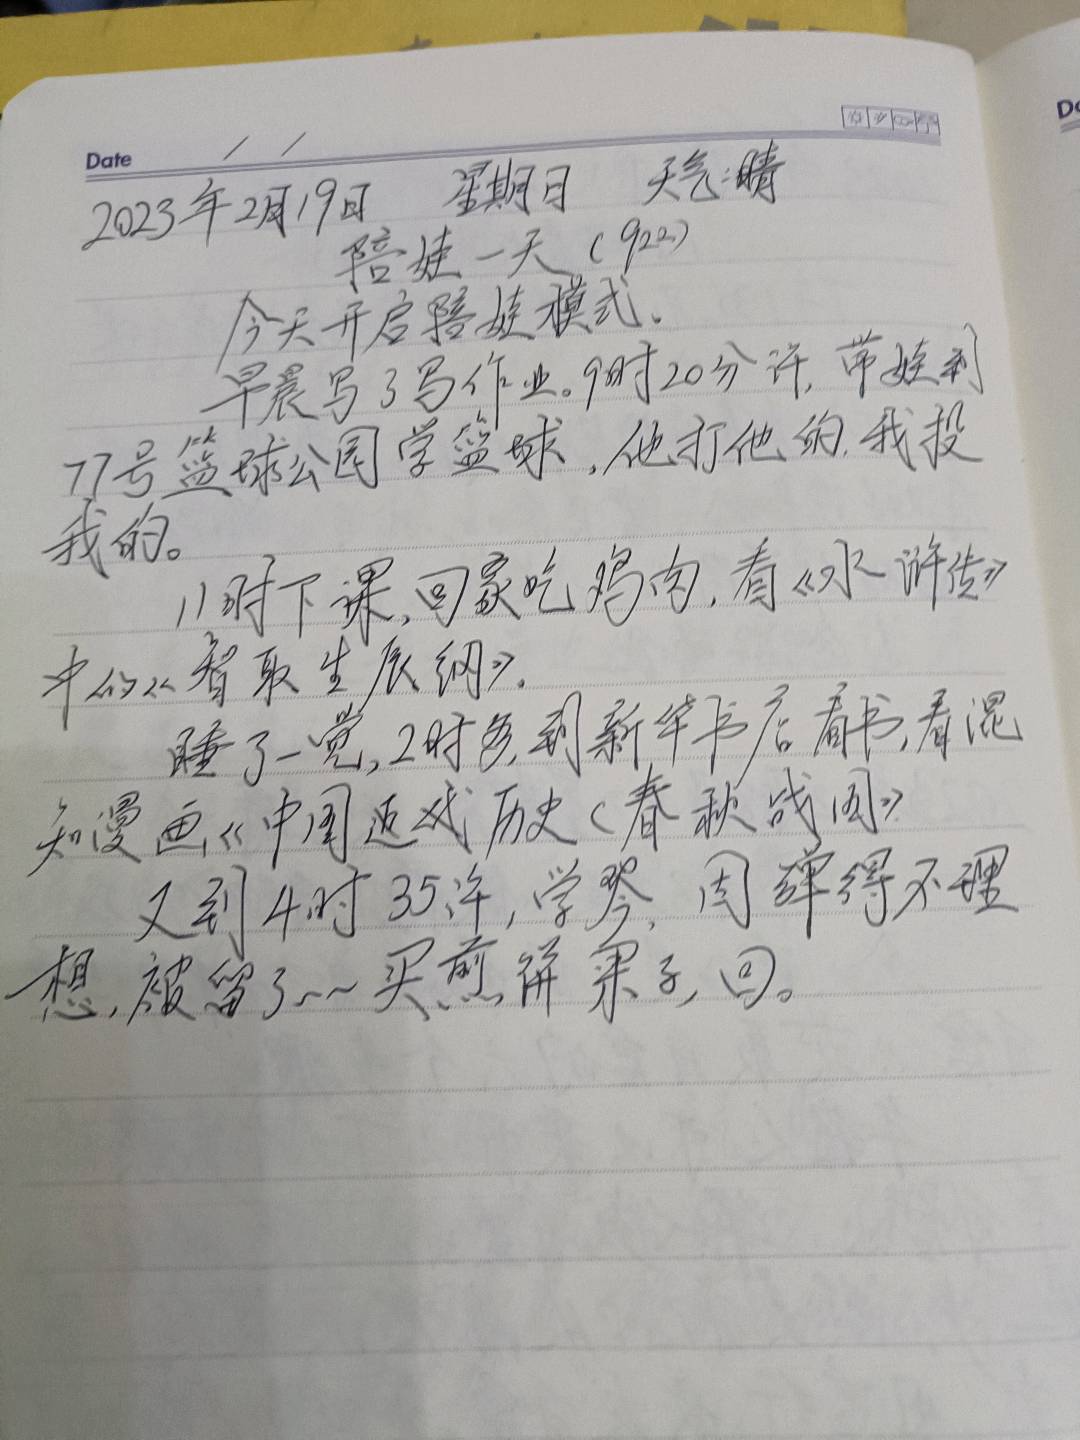 Date / /
2023年2月19日 星期日 天气:晴
陪娃一天(922)
今天开启陪娃模式.
早晨写了写作业。9时20分许,带娃到
77号篮球公园学篮球,他打他的,我投
我的。
11时下课,回家吃鸡肉,看《水浒传》
中的《智取生辰纲》.
睡了一觉,2时多,到新华书店看书,看混
知漫画《中国 历史(春秋战国》
又到4时35许,学琴,因弹得不理
想,被留了~~买煎饼果子,回。